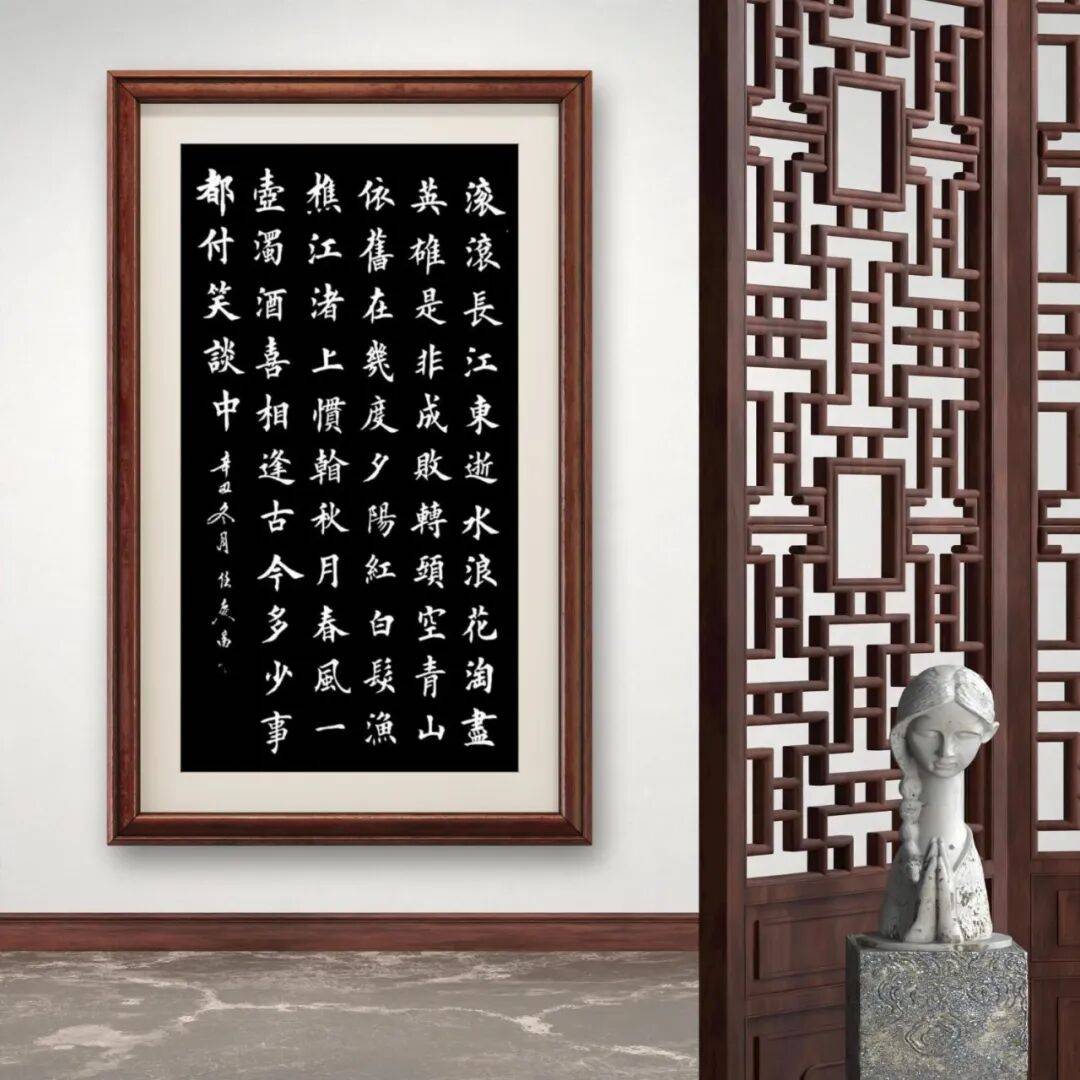 滾滾長江東逝水浪花淘盡
英雄是非成敗轉頭空青山
依舊在幾度夕陽紅白髮漁
樵江渚上慣看秋月春風一
壺濁酒喜相逢古今多少事
都付笑談中 辛丑冬月